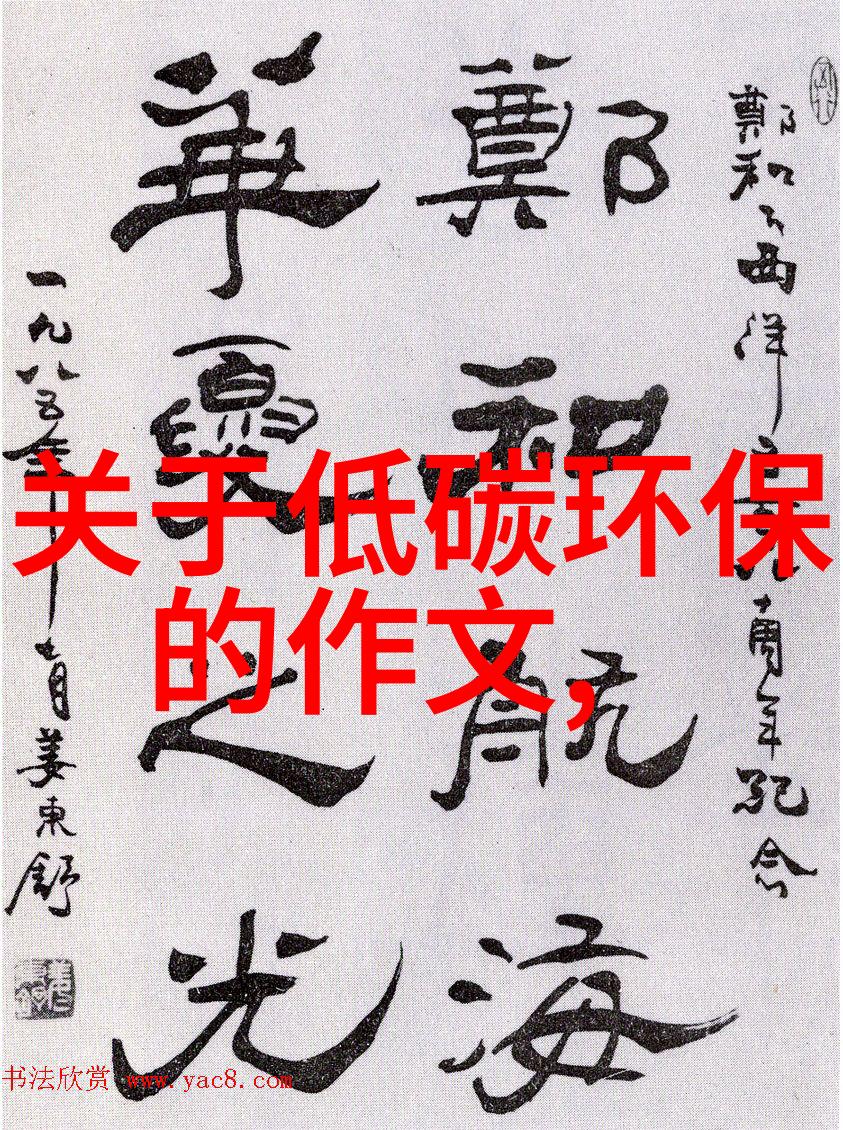 鄭和下西洋五百八十周年紀念
鄭和航海
華夏之光
一九八五年十一月姜東舒
关于低碳环保
的作文,
书法欣赏 www.yac8.com